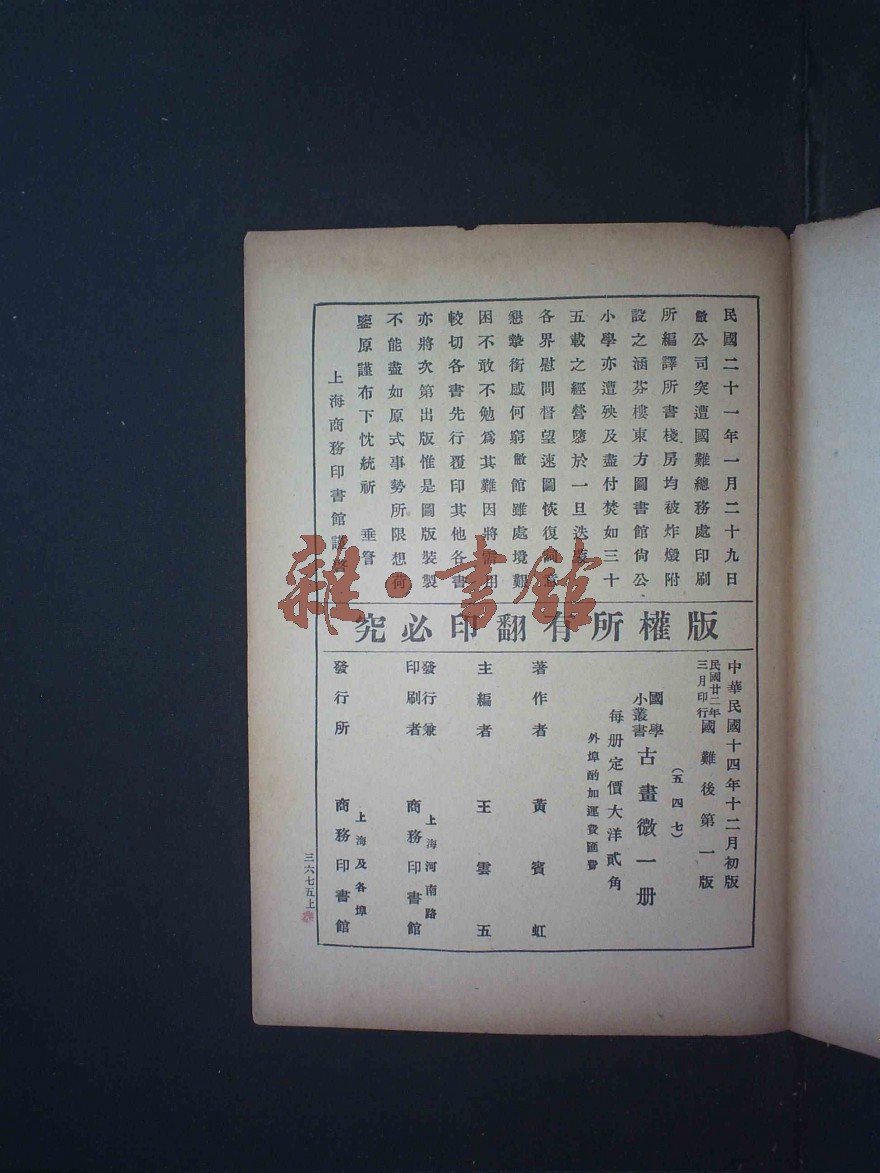 民國二十一年一月二十九日
敝公司突遭國難總務處印刷
所編譯所書棧房均被炸燬附
設之涵芬樓東方圖書館尙公
小學亦遭殃及盡付焚如三十
五載之經營隳於一旦迭蒙
各界慰問督望速圖恢復詞意
懇摯銜感何窮敝館雖處境艱
困不敢不勉爲其難因將需用
較切各書先行覆印其他各書
亦將次第出版惟是圖版裝製
不能盡如原式事勢所限想荷
鑒原謹布下忱統祈 垂詧
上海商務印書館謹啓
版權所有翻印必究
中華民國十四年十二月初版
民國廿二年三月印行國難後第一版
(五四七)
國學小叢書 古畫微一册
每册定價大洋貳角
外埠酌加運費匯費
著作者 黃賓虹
主編者 王雲五
發行兼印刷者 上海河南路 商務印書館
發行所 上海及各埠 商務印書館
三六七五上
雜·書館